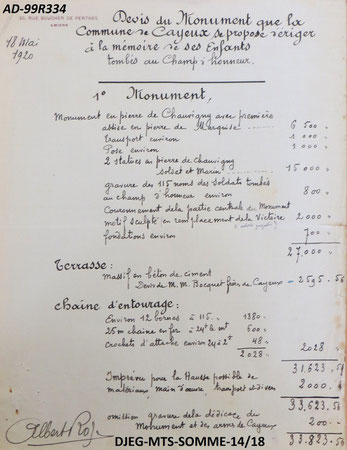 AD-99R334
35 RUE BOUCHER DE PERTHES
AMIENS
18 Mai
1920
Devis du Monument que la
Commune de Cayeux se propose d'ériger
à la mémoire de ses Enfants
tombés au Champ d'honneur.
1° Monument,
Monument en pierre de Chauvigny avec première
assise en pierre de Marquise 6 500 »
transport environ 1 000 »
Pose environ 1 000 »
2 statues en pierre de Chauvigny
Soldat et Marin 15 000 »
gravure des 115 noms des Soldats tombés
au champ d'honneur environ 800 »
Couronnement de la partie centrale du Monument
motif sculpté en remplacement de la Victoire 2 000 »
fondations environ 700 »
27,000 »
Terrasse:
Massif en béton de ciment
Devis de M. M. Bocquet frères de Cayeux 2595.56
Chaîne d'entourage:
Environ 12 bornes à 115 » 1380.
25m chaîne en fer à 24f le mt 600 »
Crochets d'attache environ 24 à 2f 48 »
2028 » 2028 »
31,623.56
Imprévu pour la Hausse possible de
matériaux main d'œuvre, transport et divers 2000 »
33,623.56
omission gravure de la dédicace du
Monument et des armes de Cayeux 200 »
33,823.56
Albert Roze
DJEG-MTS-SOMME-14/18